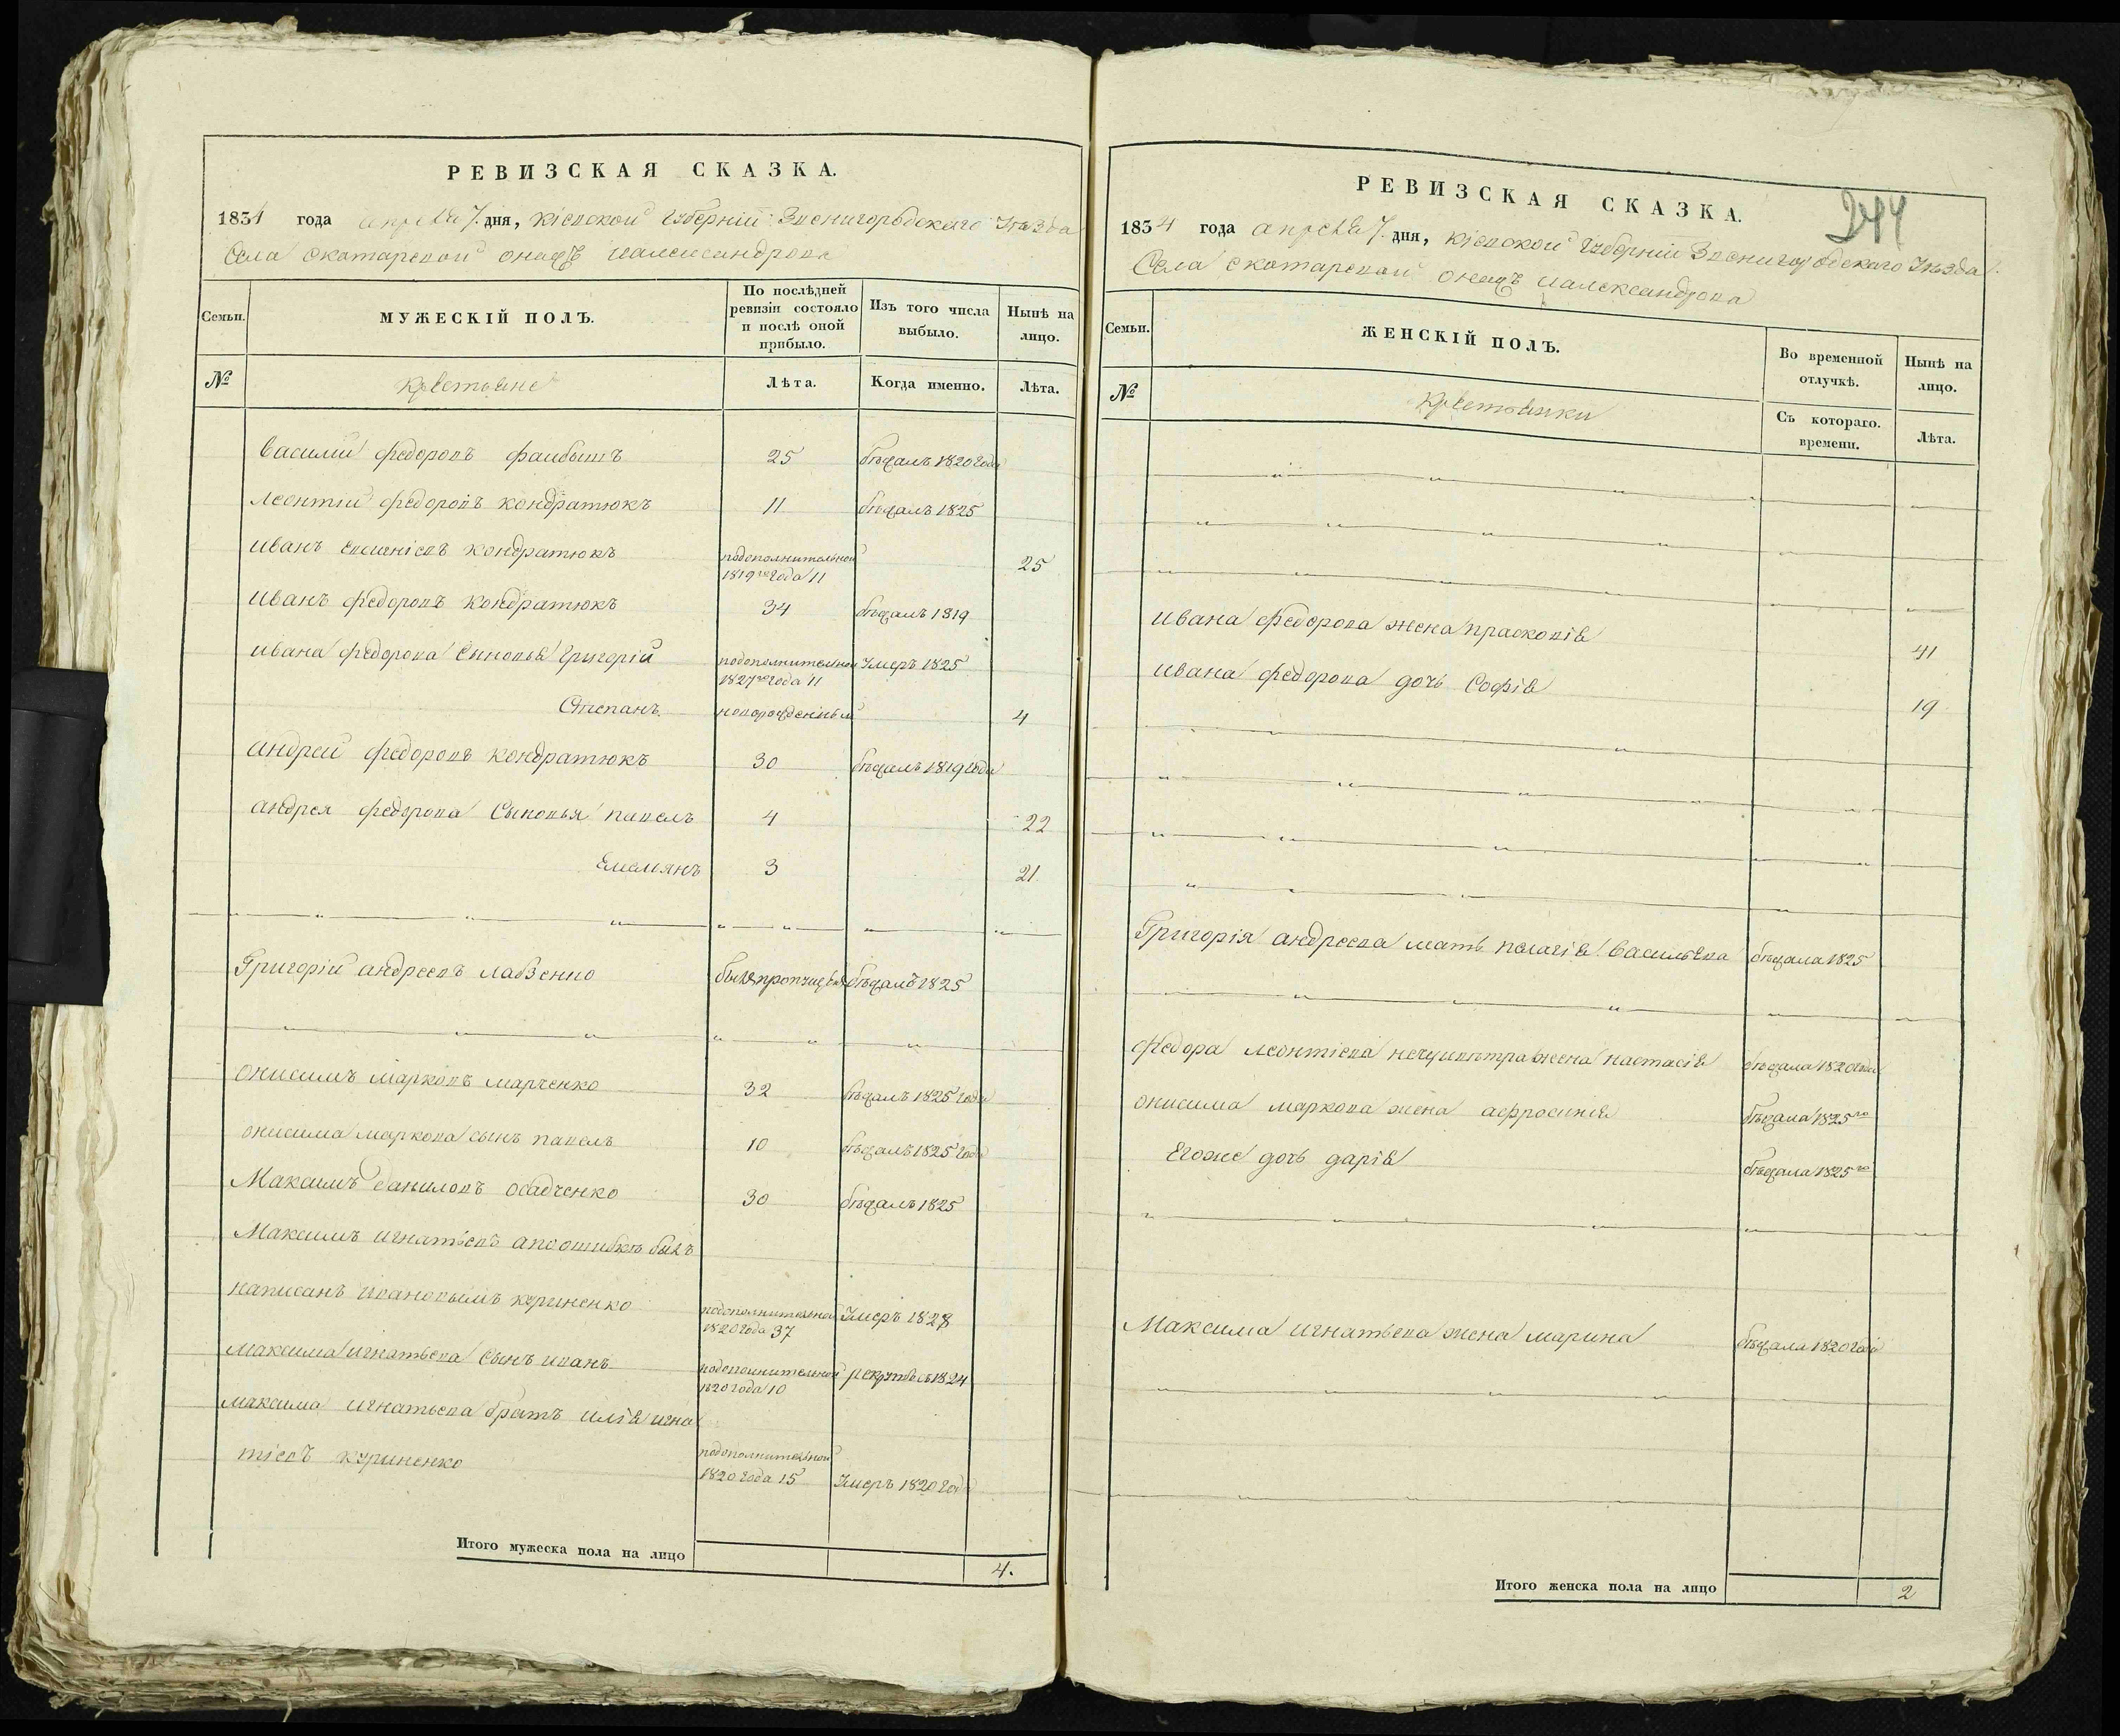 РЕВИЗСКАЯ СКАЗКА.
1834 года апреля 7. дня, кіевской Губерніи Звенигородского Уезда
Села скотаревой онажъ иалександрова
Семьи.
МУЖЕСКІЙ ПОЛЪ.
По послѣдней ревизіи состояло и послѣ оной прибыло.
Изъ того числа выбыло.
Нынѣ на лицо.
№
крестьяне
Лѣта.
Когда именно.
Лѣта.
василий федоровъ 25 бѣжалъ 1820 года
леонтий федоровъ кондратюкъ 11 бѣжалъ 1825
иванъ кондратюкъ подополнительной 1819го года 11 25
иванъ федоровъ кондратюкъ 34 бѣжалъ 1819
ивана федорова сыновья григорій подополнительной 1827го года 11 Умеръ 1825
Степанъ новорожденный 4
андрей федоровъ кондратюкъ 30 бѣжалъ 1819 года
андрея федорова Сыновья павелъ 4 22
Емелянъ 3 21
Григорій андреевъ лавзенко бѣжалъ 1825
онисимъ марковъ марченко 32 бѣжалъ 1825 года
онисима маркова сынъ павелъ 10 бѣжалъ 1825 года
Максимъ даниловъ осадченко 30 бѣжалъ 1825
Максимъ игнатьевъ апоошибкѣ былъ
написанъ ивановымъ куриненко подополнительной 1820 года 37 Умеръ 1828
максима игнатьева сынъ иванъ подополнительной 1820 года 10 1824
максима игнатьева братъ илія игна
тіевъ куриненко подополнительной 1820 года 15 Умеръ 1820 года
Итого мужеска пола на лицо 4.
РЕВИЗСКАЯ СКАЗКА.
244
1834 года апреля 7. дня, кіевской Губерніи Звенигородского Уезда
Села скотаревой онажъ иалександрова
Семьи.
ЖЕНСКІЙ ПОЛЪ.
Во временной отлучкѣ.
Нынѣ на лицо.
№
крестьянки
Съ котораго. времени.
Лѣта.
ивана федорова жена прасковія 41
ивана федорова дочь Софія 19
Григорія андреева мать пелагія васильева бѣжала 1825
Федора леонтіева жена настасія бѣжала 1820 года
онисима маркова жена афросинія бѣжала 1825го
Егоже дочь дарія бѣжала 1825го
Максима игнатьева жена марина бѣжала 1820 года
Итого женска пола на лицо 2